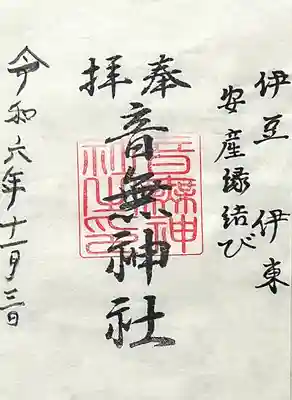 伊豆 伊東
安産縁結び
奉拝
音無神社
音無神社印
令和六年十一月三日